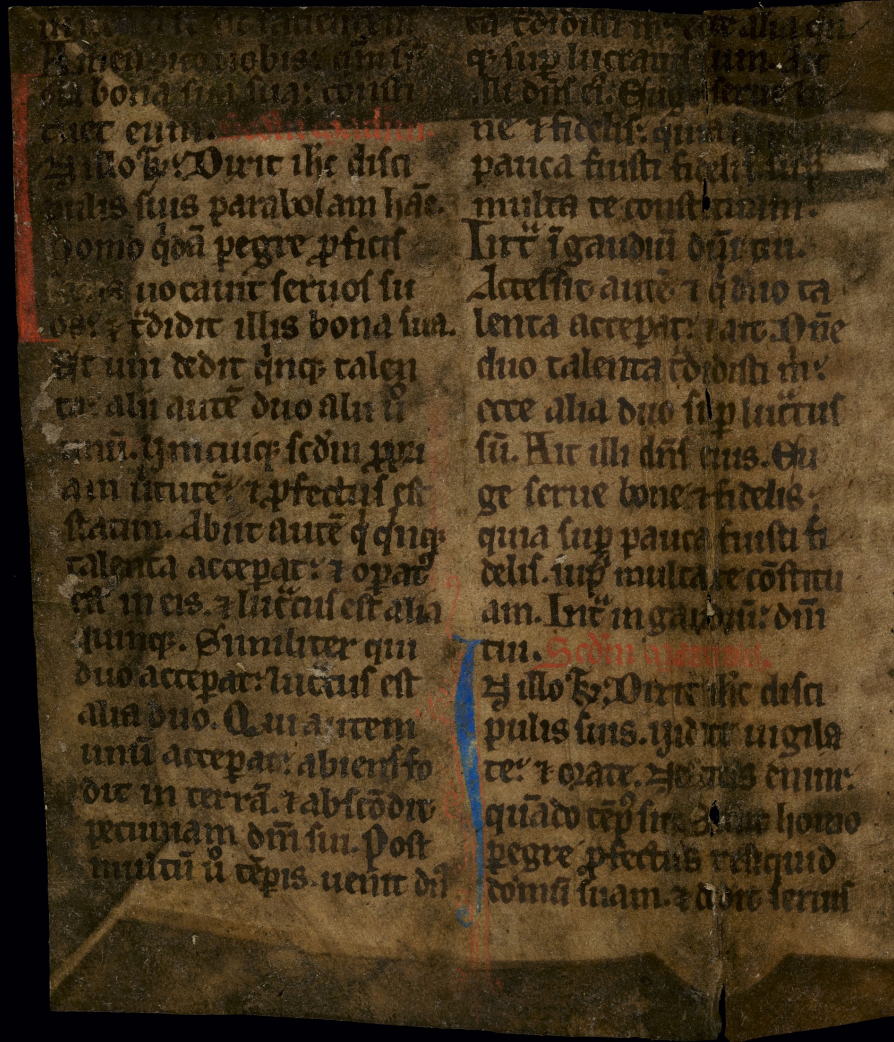 Amen dico uobis: qm̄ sr̄
oīa bona sua sua: consti
tuet eum.
N illo t̄p̄: Dixit ih̄c disci
pulis suis parabolam hāc.
homo q̇dā pegre p̄ficis
uocauit seruos su
os: ⁊ t̄didit illis bona sua.
Et uni dedit q̇nq; talen
ta: alii autē duo alii ů
unū. Vnicuiq; scd̄m ꝓpri
am ůtutē: ⁊ ꝓfectus est
statim. Abiit autē q̇ q̇nq;
talenta acceꝑat: ⁊ opat᷒
est in eis. ⁊ lucͣtus est alia
quinq;. Similiter qui
duo acceꝑat: lucͣtus est
alia duo. Qui autem
unū acceꝑat: abiens fo
dit in terrā. ⁊ abscōdit
pecuniam dn̄i sui. Post
multū ů tēꝑis. uenit dn̄s
ta t̄didisti m̄: ecce alia qn̄
q; suꝑ lucratus sum. Ait
illi dn̄s ei᷒. Euge serue bo
ne ⁊ fidelis: quia
pauca fuisti fidelis suꝑ
multa te constituam:
Intͣ ī gaudiū dn̄i tui.
Accessit autē ⁊ q̇ duo ta
lenta acceꝑat: ⁊ ait. Dn̄e
duo talenta t̄didisti m̄:
ecce alia duo suꝑ lucͣtus
sū. Ait illi dn̄s eius. Eu
ge serue bone ⁊ fidelis:
quia suꝑ pauca fuisti fi
delis. suꝑ multa te cōstitu
am. Intͣ in gaudiū: dn̄i
tui. Scd̄m
N illo t̄p̄: Dixit ih̄c disci
pulis suis. Videte uigila
te: ⁊ orate. Nescitis enim:
quādo tēp᷒ sit. Sicut homo
ꝑegre ꝓfectus reliquid
domū suam. ⁊ dedit seruis